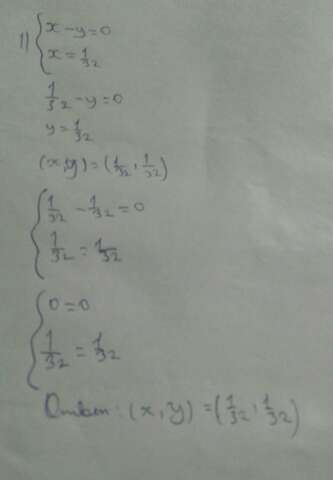 1) { x - y = 0
x = 1/32
1/32 - y = 0
y = 1/32
(x, y) = (1/32, 1/32)
{ 1/32 - 1/32 = 0
1/32 = 1/32
{ 0 = 0
1/32 = 1/32
Ответ: (x, y) = (1/32, 1/32)